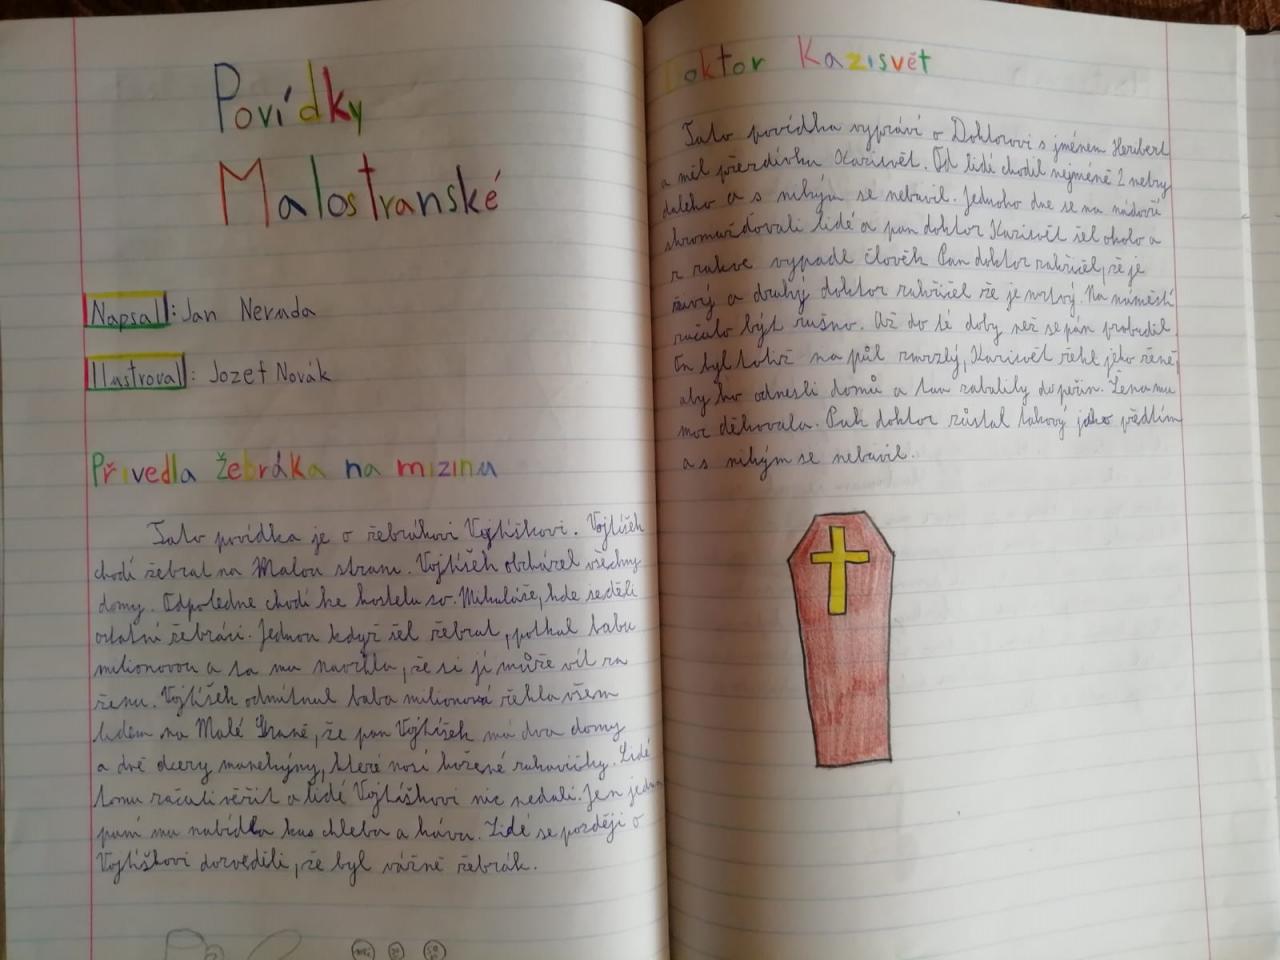 Povídky
Malostranské
Napsal: Jan Neruda
Ilustroval: Jozef Novák
Přivedla žebráka na mizinu
Tato povídka je o žebrákovi Vojtíškovi. Vojtíšek
chodí žebrat na Malou stranu. Vojtíšek obcházel všechny
domy. Odpoledne chodí ke kostelu sv. Mikuláše, kde seděli
ostatní žebráci. Jednou když šel žebrat, potkal babu
milionovou a ta mu navrhla, že si jí může vít za
ženu. Vojtíšek odmítnul baba milionová řekla všem
lidem na Malé Straně, že pan Vojtíšek má dva domy
a dvě dcery manekýny, které nosí kožené rukavičky. Lidé
tomu začali věřit a lidé Vojtíškovi nic nedali. Jen jedna
paní mu nabídla kus chleba a kávu. Lidé se později o
Vojtíškovi dozvěděli, že byl vážně žebrák.
Doktor Kazisvět
Tato povídka vypráví o Doktorovi s jménem Heribert
a měl přezdívku Kazisvět. Od lidí chodil nejméně 2 metry
daleko a s nikým se nebavil. Jednoho dne se na nádvoří
shromažďovali lidé a pan doktor Kazisvět šel okolo a
z rakve vypadl člověk Pan doktor zakřičel, že je
živý a druhý doktor zakřičel že je mrtvý. Na náměstí
začalo být rušno. Až do té doby než se pán probudil.
On byl totiž na půl zmrzlý, Kazisvět řekl jeho ženě,
aby ho odnesli domů a tam zabalily do peřin. Žena mu
moc děkovala. Pak doktor zůstal takový jako předtím
a s nikým se nebavil.